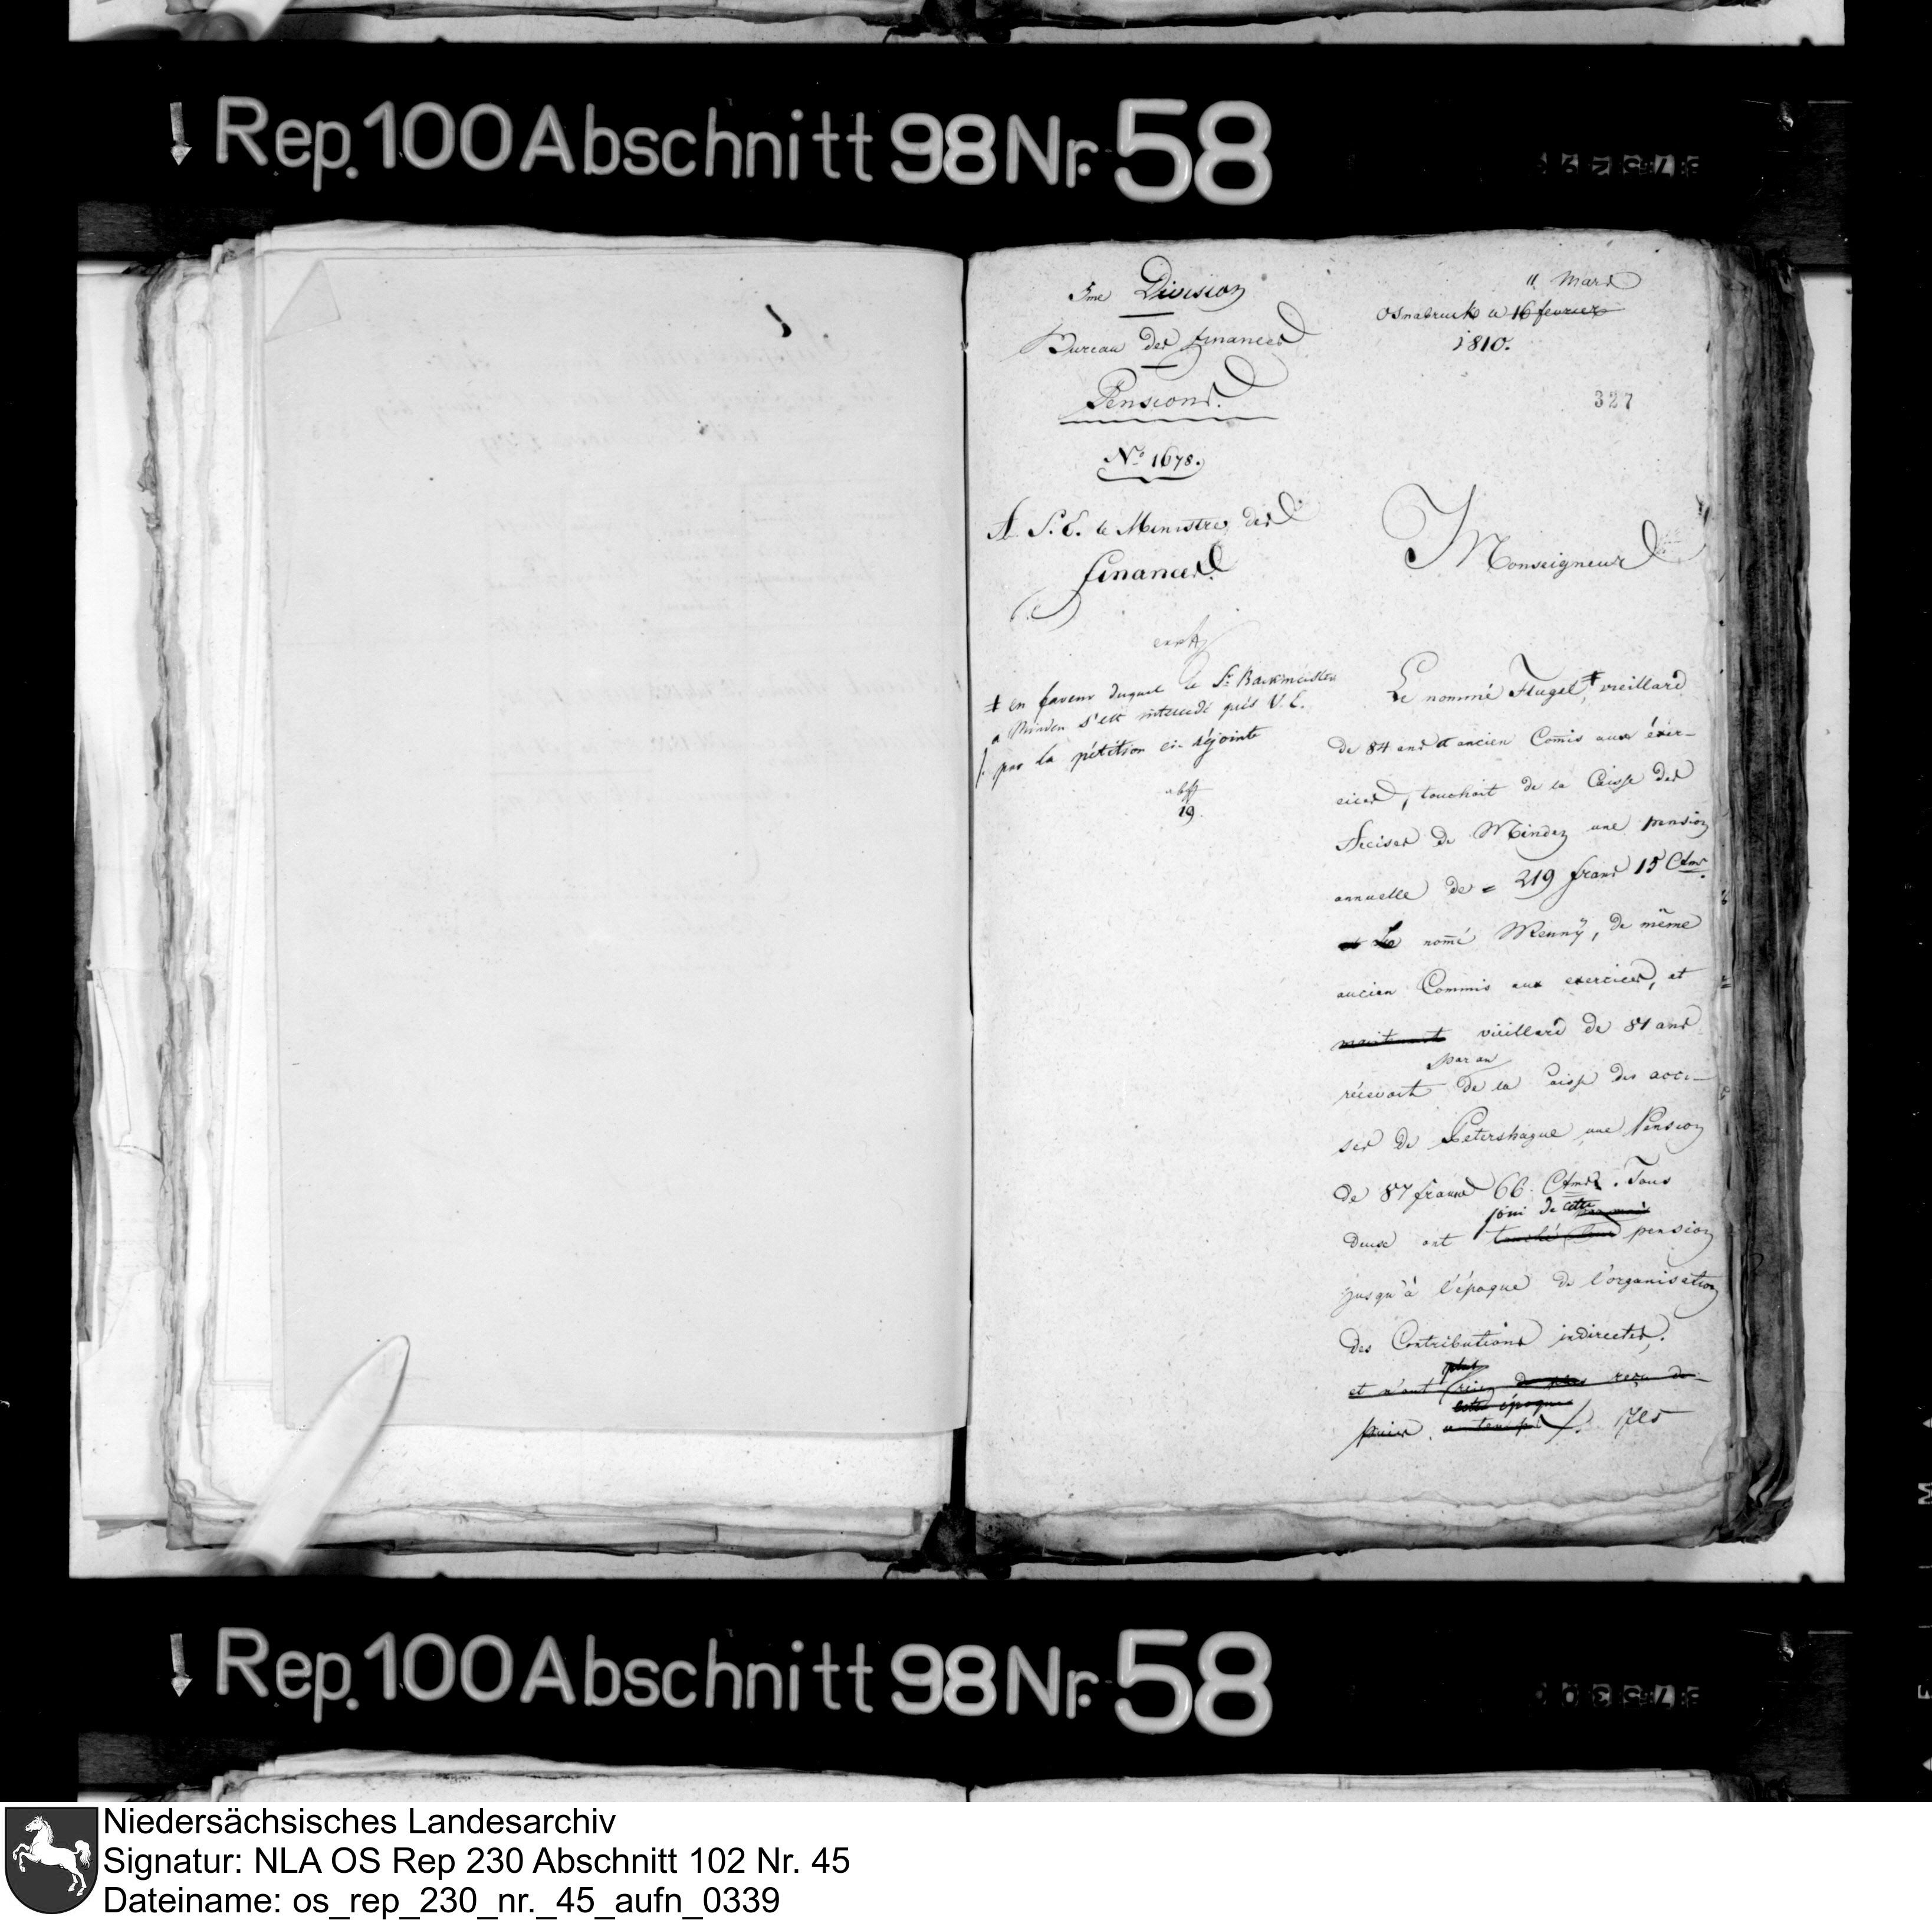 Rep. 100 Abschnitt 98 Nr. 58
3me Division
Bureau des finances
Pensions.
No. 1678.
A S. E. le Ministre des
finances.
11 Mars
Osnabruck le 16 fevrier
1810.
327
Monseigneur
‡ en faveur duquel le Sr. Backmeister
a Minden s'est intercedé près V. E.
par la pétition ci-déjointe
19
Le nommé Flugel, ‡ vieillard
de 84 ans et ancien Comis aux éxer-
cices, touchait de la Caisse des
Accises de Minden une pension
annuelle de = 219 francs 15 Ctms.
et Le nomé Menny, de même
ancien Commis aux exercices, et
maintenant vieillard de 81 ans
par an
récevait de la Caisse des acci-
ses de Petershague une Pension
de 87 francs 66. Ctms. Tous
joui de cette
deux ont touché leur pension
jusqu'à l'époque de l'organisation
des Contributions indirectes.
plus
et n'ont rien de plus reçu de-
cette époque
puis Ils
Rep. 100 Abschnitt 98 Nr. 58
Niedersächsisches Landesarchiv
Signatur: NLA OS Rep 230 Abschnitt 102 Nr. 45
Dateiname: os_rep_230_nr._45_aufn_0339